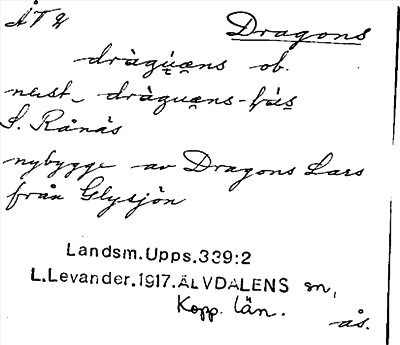 ÅT2 Dragons
dràgu̯æns ob.
neist. dràguæns-hùs
S. Rånås
nybygge av Dragons Lars
från Glysjön
Landsm.Upps.339:2
L.Levander.1917.ÄLVDALENS sn,
Kopp. län.
ås.